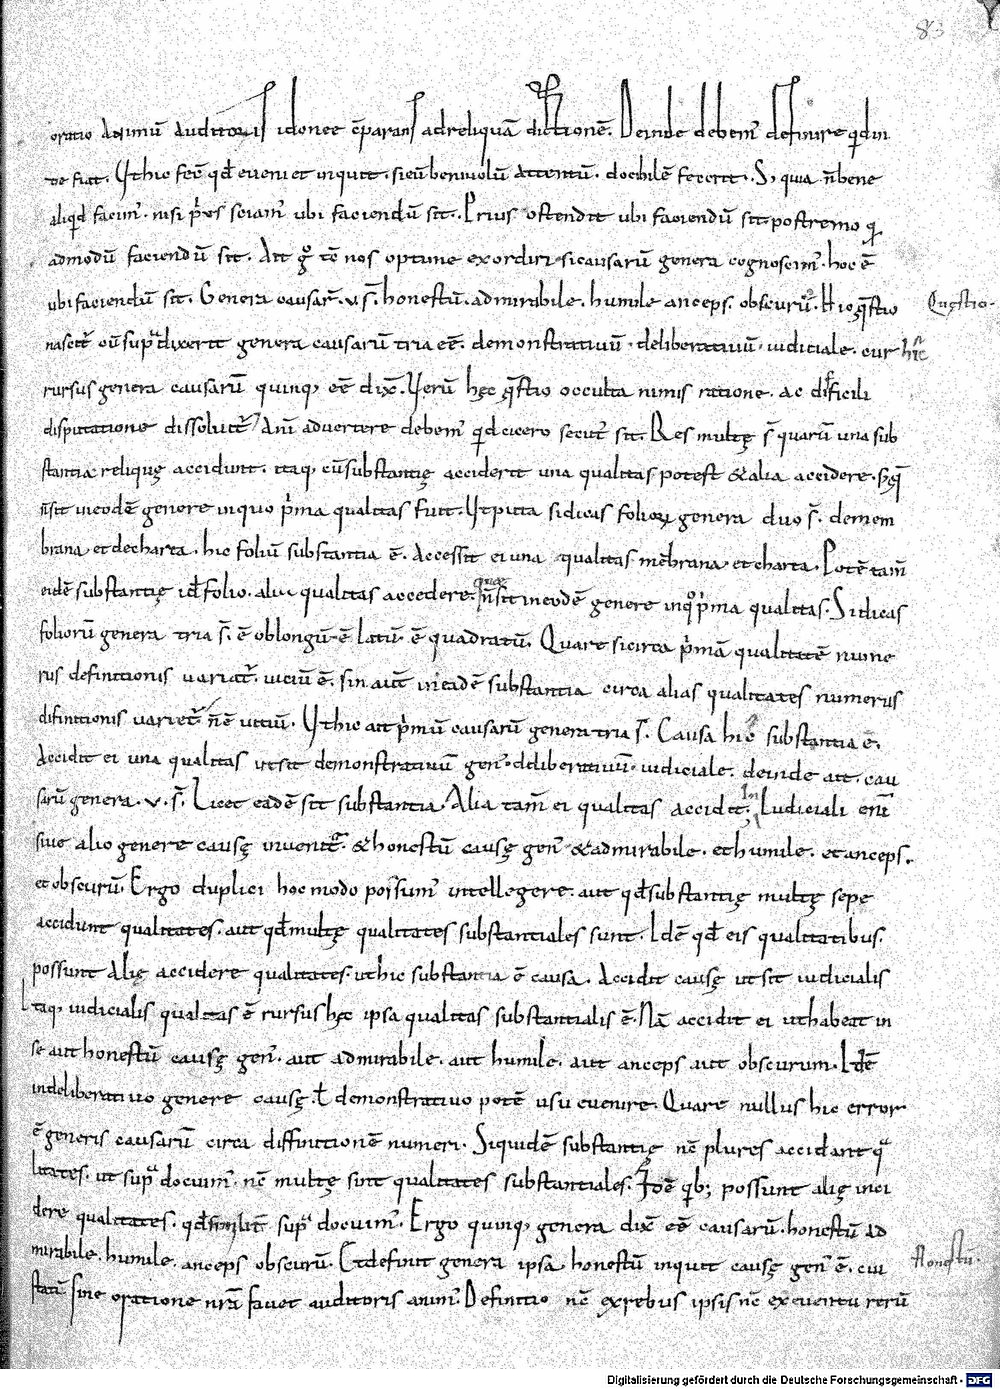 83
oratio animū auditoris idonee cōparans ad reliquā dictionē. Deinde debem' definire qd in
de fiat. Ut hic fec̄ qd̄ eveniet inquit. si eū benivolū attentū. docibilē fecerit. S; quia n̄ bene
aliqd facim'. nisi p̄us sciam' ubi faciendū sit. Prius ostendit ubi faciendū sit. postremo q̄
admodū faciendū sit. Ait g° tē nos optime exordiri si causarū genera cognoscim'. hoc ē
ubi faciendū sit. Genera causar̄. v. s̄. honestū. admirabile. humile anceps. obscurū. Hic q̄stio
Questio.
nascit̄. cū sup̄ dixerit genera causarū tria eē. demonstrativū. deliberativū. iudiciale. cur hic
rursus genera causarū quinq; eē dix̄. Verū hęc q̄stio occulta nimis ratione. ac difficili
disputatione dissolvit̄. Anī advertere debem' qd cicero secut' sit. Res multę s̄ quarū una sub
stantia reliquę accidunt. itaq; cū substantię acciderit una qualitas potest & alia accidere. sed q̄
n̄ sit in eodē genere in quo p̄ma qualitas fuit. Ut puta si dicas folior̄ genera duo s̄. de mem
brana et de charta. hic foliū substantia ē. Accessit ei una qualitas mēbrana et charta. Potē tam̄
eidē substantię id̄ folio. aliu qualitas accedere. quae n̄ sit in eodē genere in q° p̄ma qualitas. Si dicas
foliorū genera tria s̄. ē oblongū ē latū ē quadratū. Quare si circa p̄mā qualitatē nume
rus definitionis variat̄. viciū ē. sin aūt in eadē substantia circa alias qualitates numerus
difinitionis variet̄ n̄ ē vitiū. Ut hic ait p̄mū causarū genera tria s̄. Causa hic substantia ē.
Accidit ei una qualitas ut sit demonstrativū gen' deliberativū. iudiciale. deinde ait. cau
sarū genera. v. s̄. Licet eadē sit substantia. Alia tam̄ ei qualitas accidit. In Iudiciali eni
sive alio genere causę invenit̄. & honestū causę gen' & admirabile. et humile. et anceps.
et obscurū. Ergo duplici hoc modo possum' intellegere. aut qd̄ substantię multę sepe
accidunt qualitates. aut qd̄ multę qualitates substantiales sunt. Idē qd̄ eis qualitatibus.
possunt alię accidere qualitates. ut hic substantia ē causa. Accidit causę ut sit iudicialis
Itaq; iudicialis qualitas ē rursus hęc ipsa qualitas substantialis ē. Nā accidit ei ut habeat in
se aut honestū causę gen'. aut admirabile. aut humile. aut anceps aut obscurum. Idē
in deliberativo genere causę. t̄ demonstrativo potē usu evenire. Quare nullus hic error
ē generis causarū circa diffinitionē numeri. Siquidē substantię nē plures accidant q̄
litates. ut sup̄ docuim'. nē multę sint qualitates substantiales. Idē qb; possunt alię inci
dere qualitates. qd̄ similit̄ sup̄ docuim'. Ergo quinq; genera dix̄ eē causarū. honestū ad
mirabile. humile. anceps obscurū. Et definit genera ipsa honestū inquit causę gen' ē. cui
Honestū.
statī sine oratione nr̄a favet auditoris anim'. Definitio nē ex rebus ipsis nē ex eventu rerū
Digitalisierung gefördert durch die Deutsche Forschungsgemeinschaft - DFG